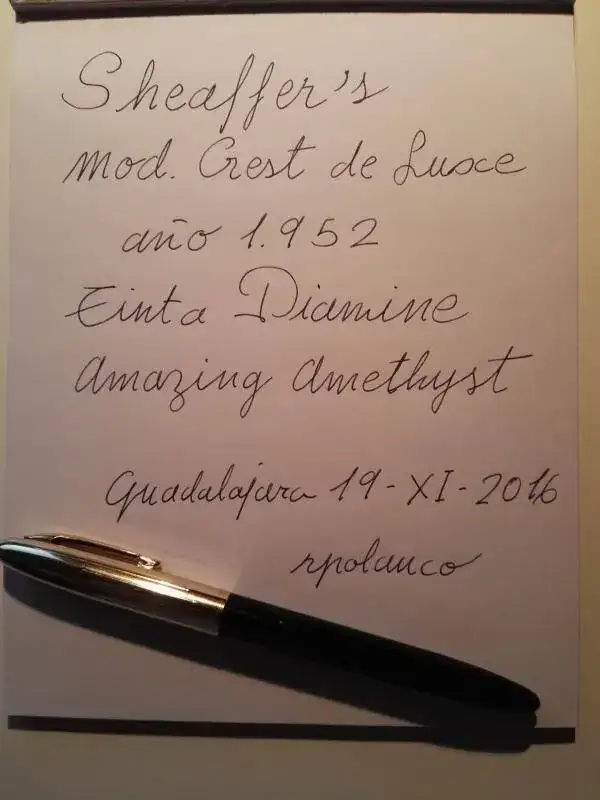 Sheaffer's
mod. Crest de Luxe
año 1.952
Tinta Diamine
Amazing Amethyst
Guadalajara 19-XI-2016
rpolanco